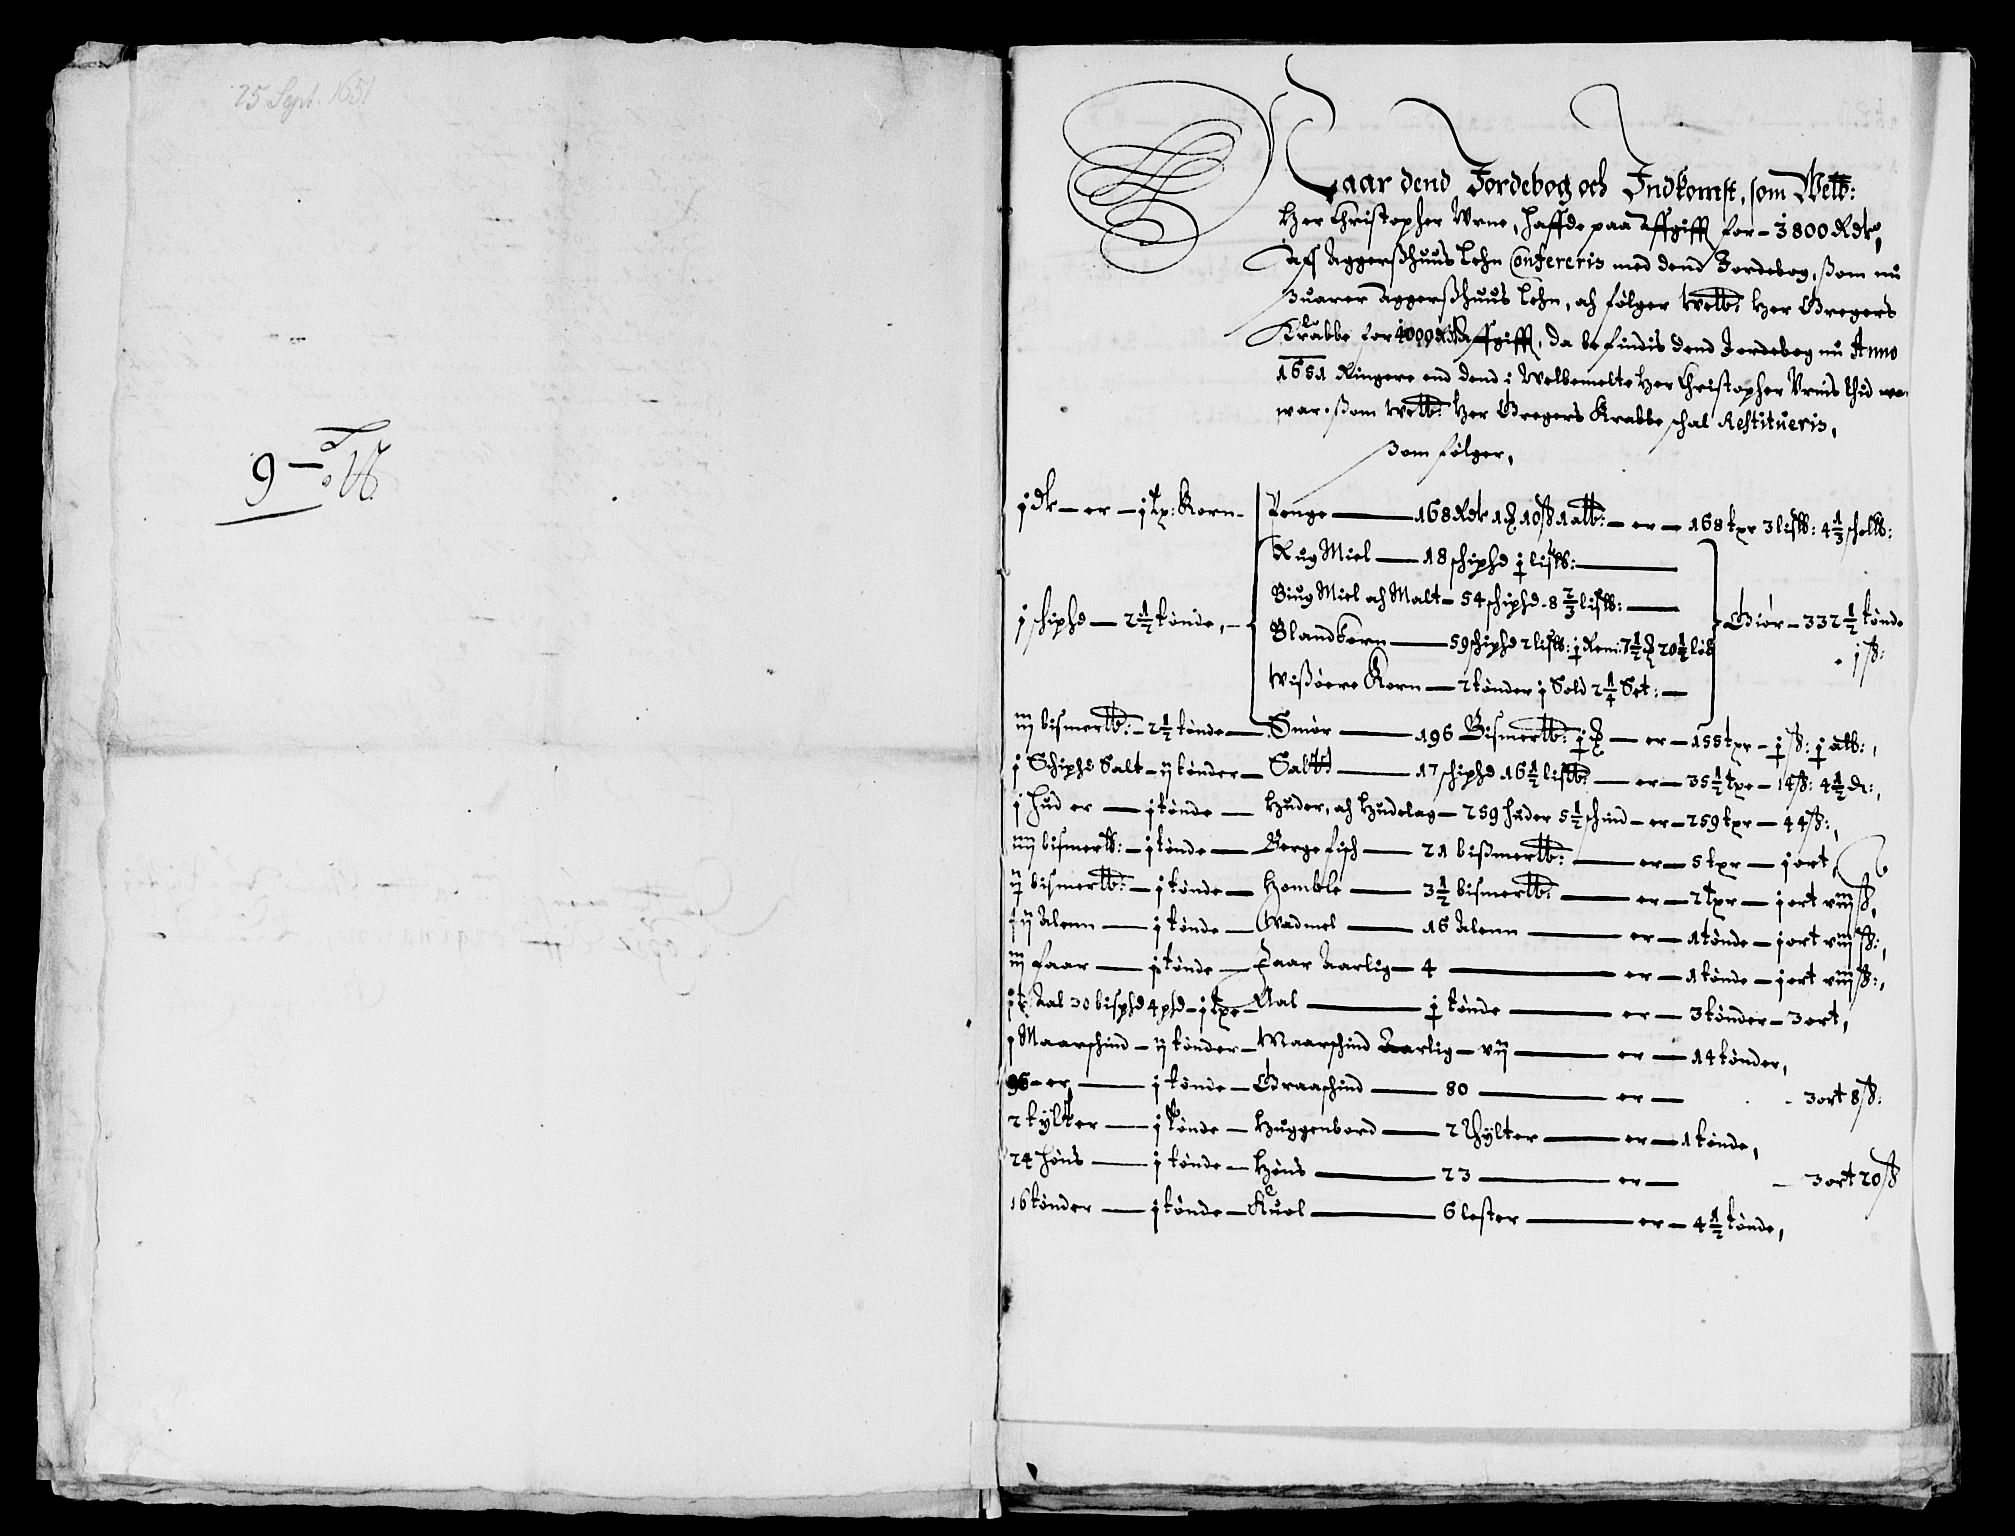 25 Sept. 1651
9 —
Naar dend Jordebog och Indkomst, som Welb:
Her Christopher Urne, haffde paa Affgifft for – 3800 Rdr,
aff Aggershuus Lehn Confereris med dend Jordebog, som nu
suarer Aggershuus Lehn, och følger Welb: Her Gregers
Krabbe for 4000 Rdr Affgifft, da befindis dend Jordebog nu Anno
1651 Ringere end dend i Welbemelte Her Christopher Urnis thid
war, som Welb: Her Gregers Krabbe schal Restitueris,
som følger,
j dr – er – j tp: Korn – Penge — 168 Rdr 1 10 ß 1 alb: – er – 168 tpr 3 lisß: 4 1/3 schelb:
Rug Miel — 18 schipd j lisß: —
Biug Miel och Malt – 54 schipd – 8 2/3 lisß: —
j schipd — 2 1/2 tønde, – Blandkorn — 59 schipd 2 lisß: j Rem: 7 1/2 20 1/2 lod Giør – 332 1/2 tønde
j ß:
Wisøere Korn — 2 tønder j Sold 2 1/4 Set: —
iij bismerlb: – 2 1/2 tønde — Smør — 196 Bismerlb: j — er – 155 tpr – j ß: j alb:,
j Schipd Salt – ij tønder – Salt — 17 schipd 16 1/2 lisß: — er – 35 1/2 tpr – 14 ß: 4 1/2 d:,
j Hud er — j tønde — Huder, och Hudelag – 259 huder 5 1/2 schind – er – 259 tpr – 44 ß:,
iiij bismerlb: – j tønde — Bergefisch — 21 bismerlb: — er – 5 tpr — j ort,
ij bismerlb: – j tønde — Homble — 3 1/2 bismerlb: — er – 2 tpr — j ort viij ß,
Alenn — j tønde – Wadmel — 16 Alenn — er – 1 tønde – j ort viij ß:,
iij faar — j tønde – Faar Aarlig – 4 — er – 1 tønde – j ort viij ß:,
j t Aal 30 bispd 4 pd – j tpr – Aal — j tønde — er – 3 tønder – 3 ort,
j Maarschind – ij tønder – Maarschind Aarlig – vij — er — 14 tønder,
96 – er — j tønde – Graaschind — 80 — er — 3 ort 8 ß:
2 tylter — j tønde – Huggenbord — 2 thylter — er – 1 tønde,
24 Høns — j tønde – Høns — 23 — er — 3 ort 20 ß
16 tønder — j tønde – Kuol — 6 lester — er – 4 1/2 tønde,